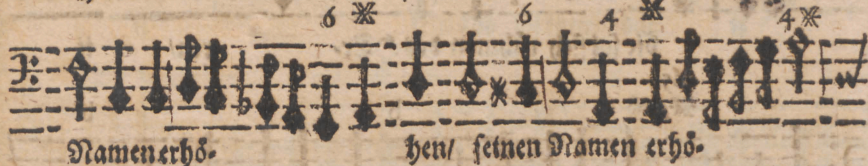 6 6 4 4
Namen erhö- hen/ seinen Namen erhö-